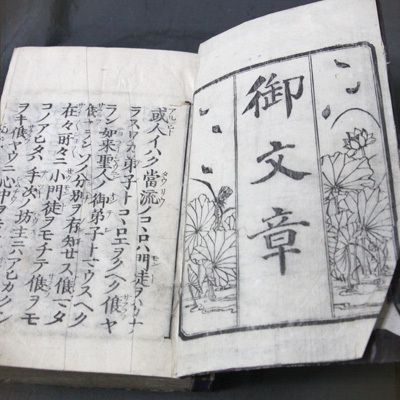 御文章
或人イハク當流ノコヽロハ門徒ヲハカナ
ラスワカ弟子トコヽロエヲクヘク候ヤ
ラン如来聖人ノ御弟子トマウスヘク
候ヤランソノ分別ヲ存知セス候マタ
在々所々ニ小門徒ヲモチテ候ヲモ
コノアヒタハ手次ノ坊主ニハアヒカクシ
ヲキ候ヤウニ心中ヲモ